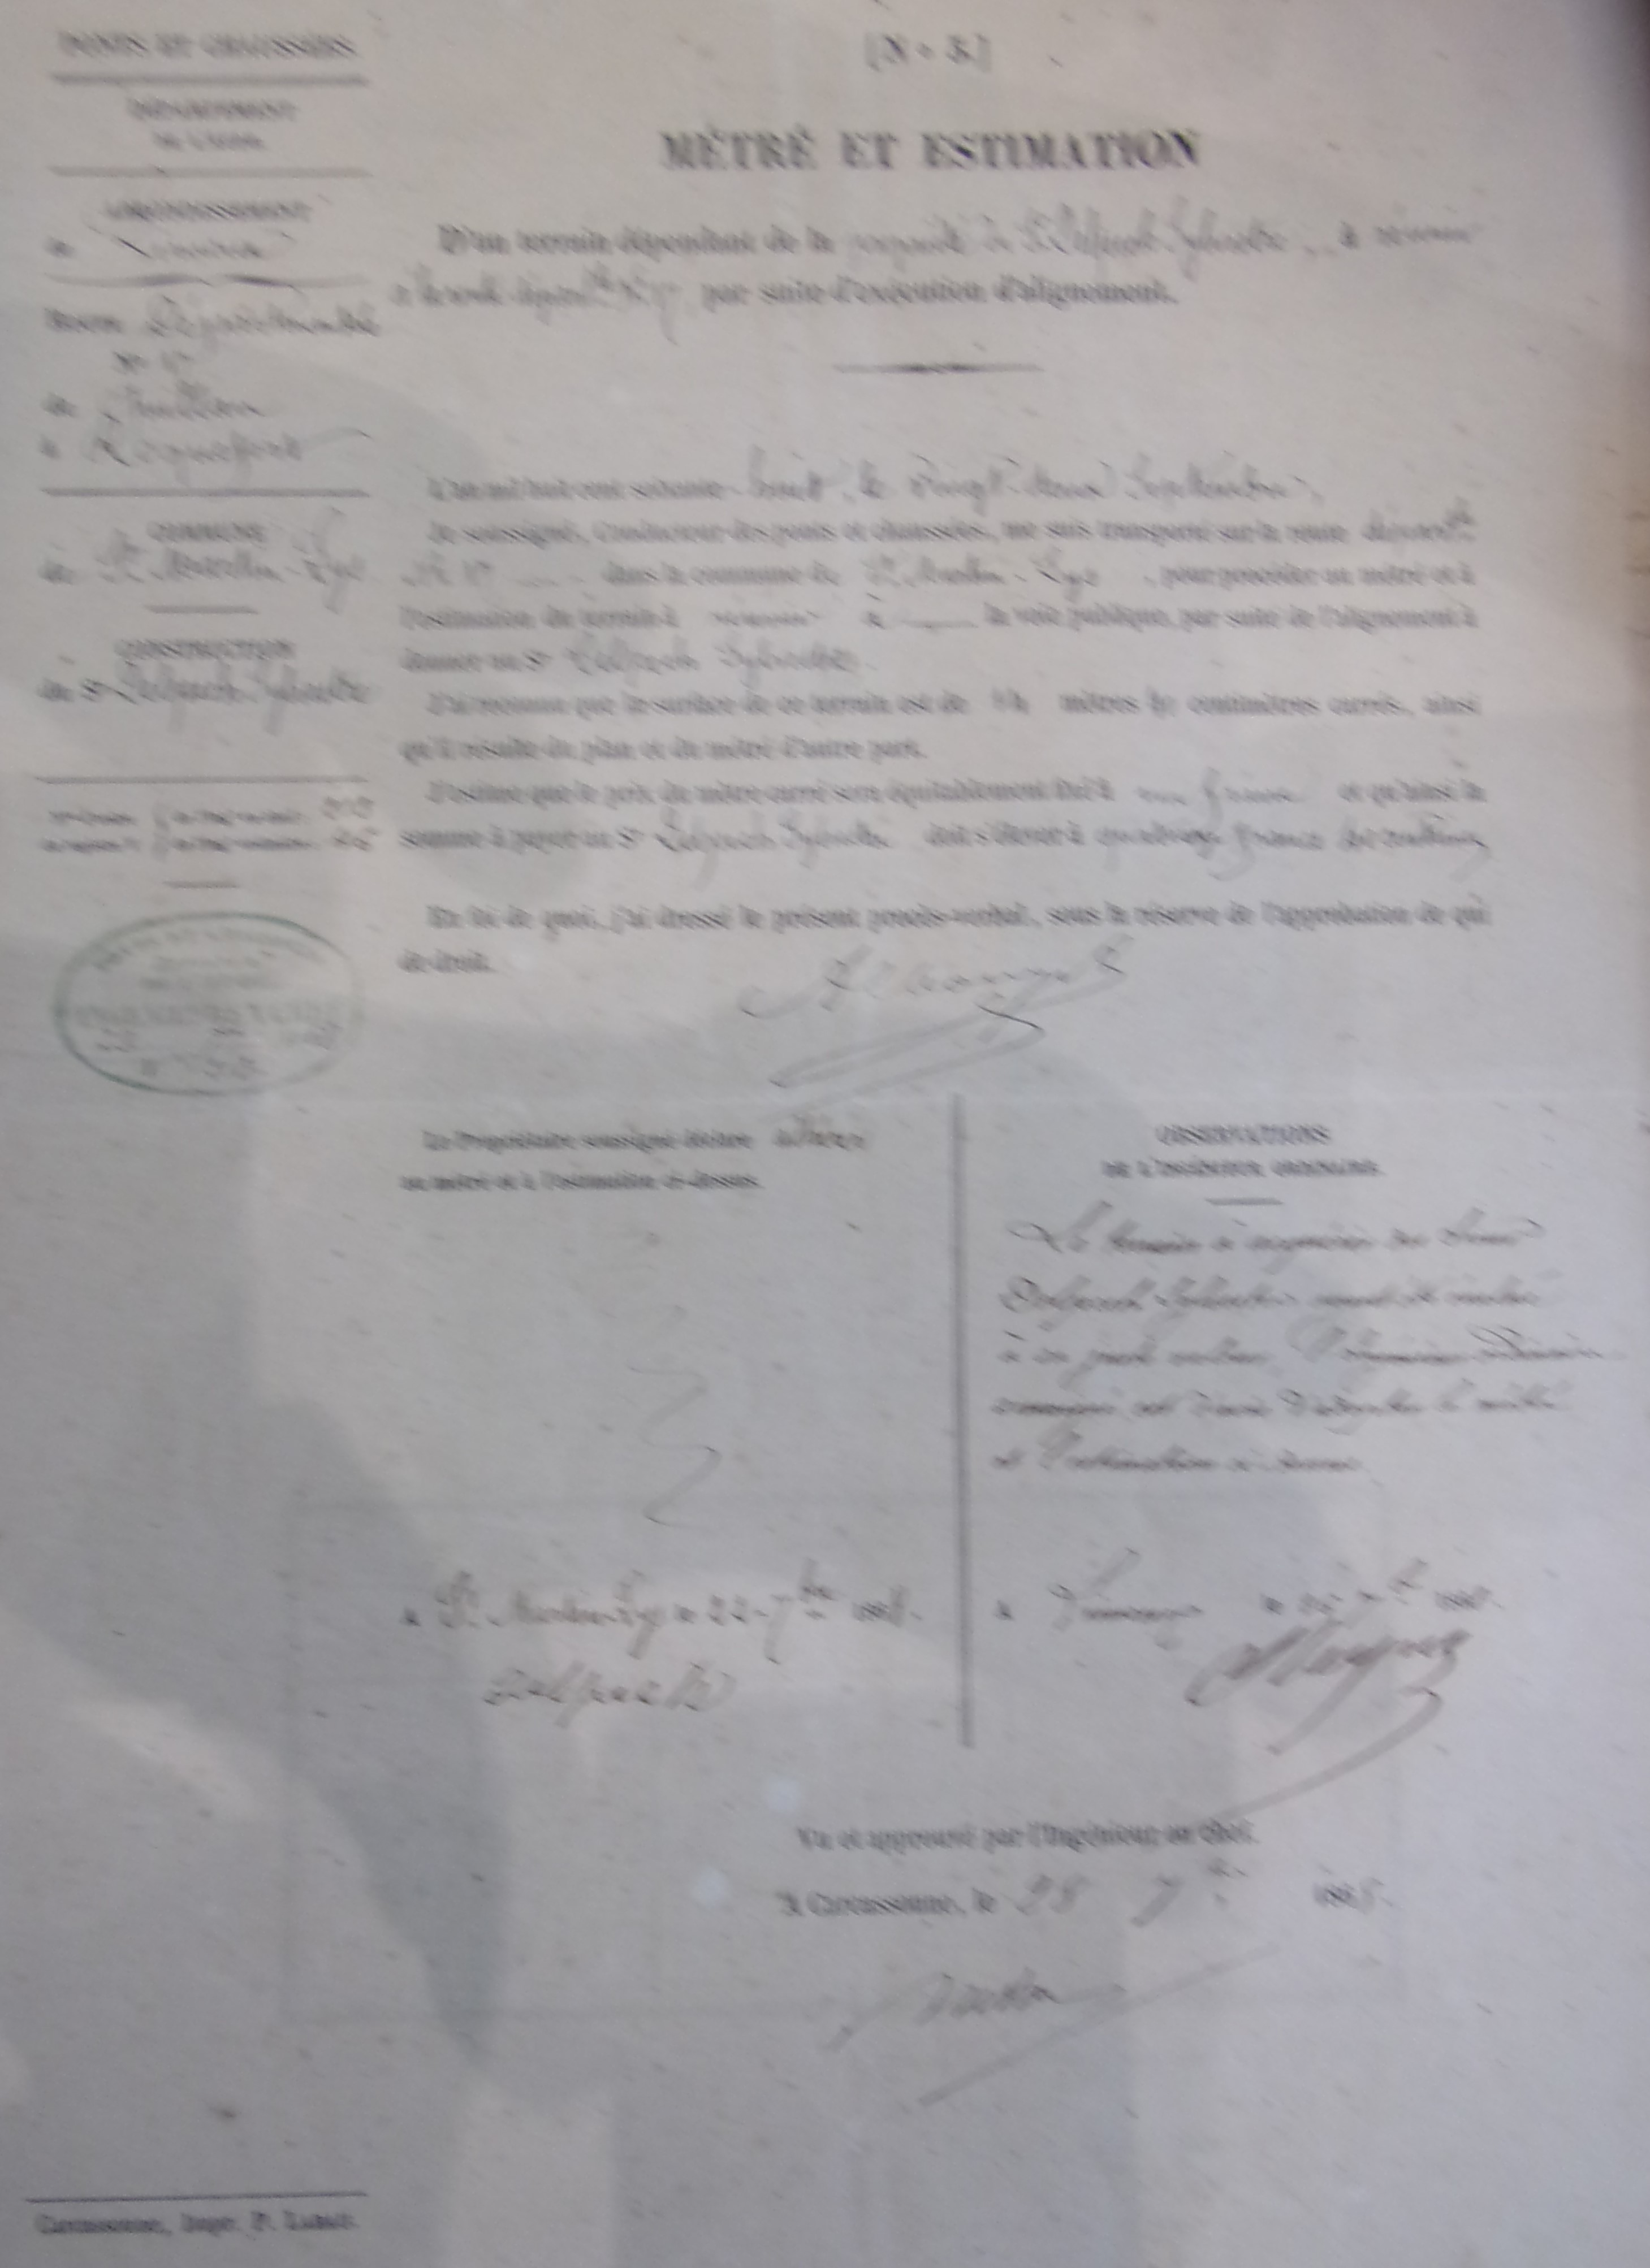 PONTS ET CHAUSSÉES
DÉPARTEMENT
DE L'AUDE.
ARRONDISSEMENT
de Limoux
ROUTE Départementale
N° 17
de Quillan
à Roquefort
COMMUNE
de St Martin-Lys
CONSTRUCTION
du Sr Delpech Sylvestre
[N° 5.]
MÉTRÉ ET ESTIMATION
D'un terrain dépendant de la propriété du Sr Delpech Sylvestre, à réunir
à la route départle N° 17, par suite d'exécution d'alignement.
L'an mil huit cent soixante-huit, le vingt-deux Septembre,
Je soussigné, Conducteur des ponts et chaussées, me suis transporté sur la route départle
N° 17 dans la commune de St Martin-Lys, pour procéder au métré et à
l'estimation du terrain à réunir à la voie publique, par suite de l'alignement à
donner au Sr Delpech Sylvestre.
J'ai reconnu que la surface de ce terrain est de mètres centimètres carrés, ainsi
qu'il résulte du plan et du métré d'autre part.
J'estime que le prix du mètre carré sera équitablement fixé à un franc et qu'ainsi la
somme à payer au Sr Delpech Sylvestre doit s'élever à francs centimes
En foi de quoi, j'ai dressé le présent procès-verbal, sous la réserve de l'approbation de qui
de droit.
Le Propriétaire soussigné déclare adhérer
au métré et à l'estimation ci-dessus.
à St Martin-Lys le 22 7bre 1868.
Delpech
OBSERVATIONS
DE L'INGÉNIEUR ORDINAIRE.
Le terrain à acquérir du Sieur
Delpech Sylvestre ayant été estimé
à sa juste valeur, l'Ingénieur ordinaire
soussigné est d'avis d'adopter le métré
et l'estimation ci-dessus.
à Limoux le 7bre 1868.
Vu et approuvé par l'Ingénieur en Chef.
A Carcassonne, le 28 7bre 1868.
Carcassonne, Impr. P. Labau.